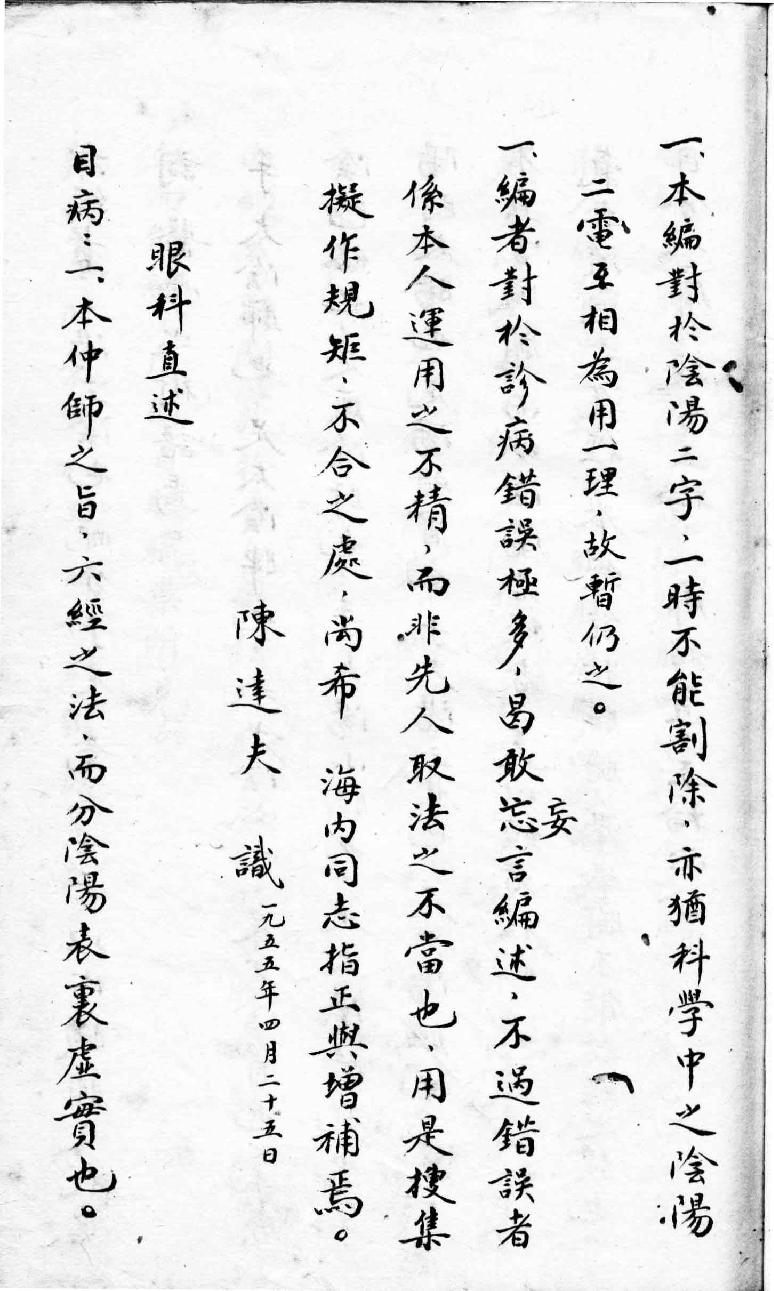 一、本編對於陰陽二字，一時不能割除，亦猶科學中之陰陽
二電互相為用一理，故暫仍之。
一、編者對於診病錯誤極多，曷敢忘妄言編述，不過錯誤者
係本人運用之不精，而非先人取法之不當也，用是搜集
擬作規矩，不合之處，尚希　海内同志指正與增補焉。
陳達夫　識　一九五五年四月二十五日
眼科直述
目病：一、本仲師之旨，六經之法，而分陰陽表裏虛實也。